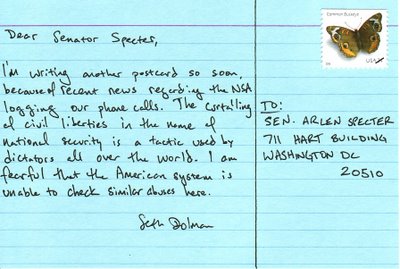 Dear Senator Specter,
I'm writing another postcard so soon,
because of recent news regarding the NSA
logging our phone calls. The curtailing
of civil liberties in the name of
national security is a tactic used by
dictators all over the world. I am
fearful that the American system is
unable to check similar abuses here.
Seth Dolman
Common Buckeye
USA
TO:
SEN. ARLEN SPECTER
711 HART BUILDING
WASHINGTON DC
20510